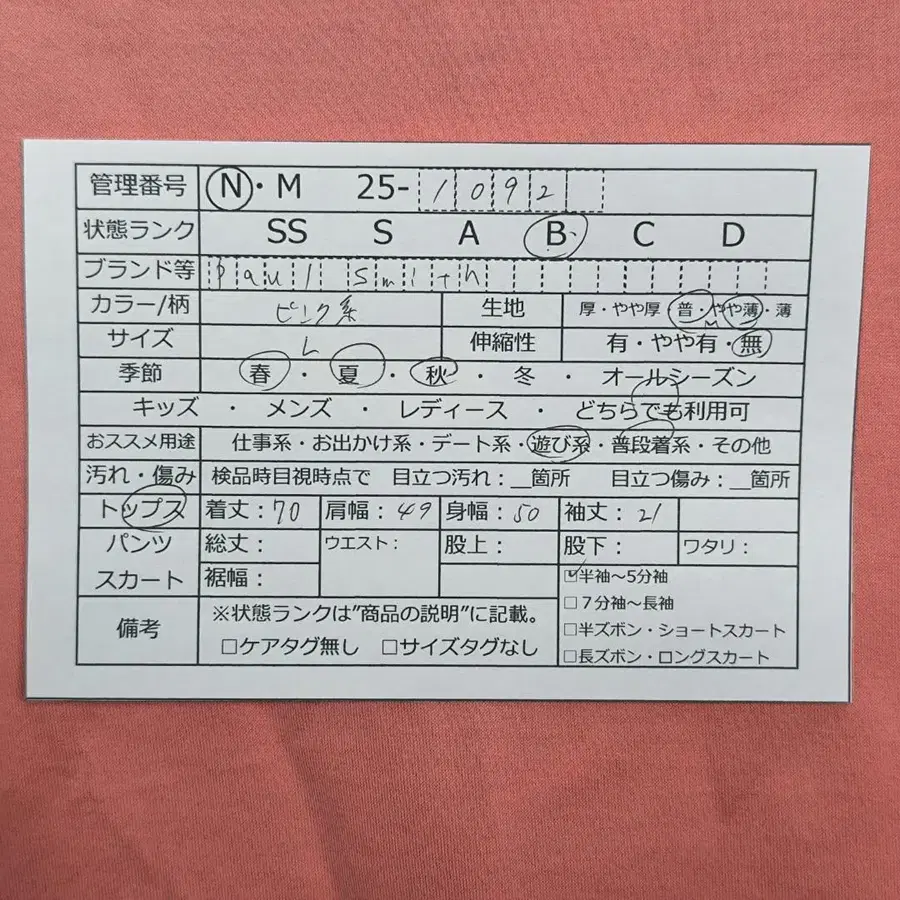 管理番号 N・M 25-1092
状態ランク SS S A B C D
ブランド等 Paul Smith
カラー/柄 ピンク系 生地 厚・やや厚・普・やや薄・薄
サイズ L 伸縮性 有・やや有・無
季節 春・夏・秋・冬・オールシーズン
キッズ・メンズ・レディース・どちらでも利用可
おススメ用途 仕事系・お出かけ系・デート系・遊び系・普段着系・その他
汚れ・傷み 検品時目視時点で 目立つ汚れ：__箇所 目立つ傷み：__箇所
トップス 着丈：70 肩幅：49 身幅：50 袖丈：21
パンツ 総丈： ウエスト： 股上： 股下： ワタリ：
スカート 裾幅： ☑半袖～5分袖
□７分袖～長袖
備考 ※状態ランクは"商品の説明"に記載。 □半ズボン・ショートスカート
□ケアタグ無し □サイズタグなし □長ズボン・ロングスカート